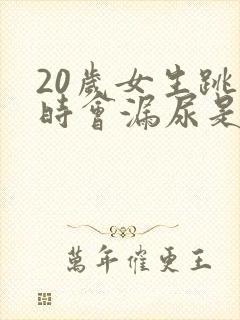 20歲女生跳
時會漏尿是
萬年催更王